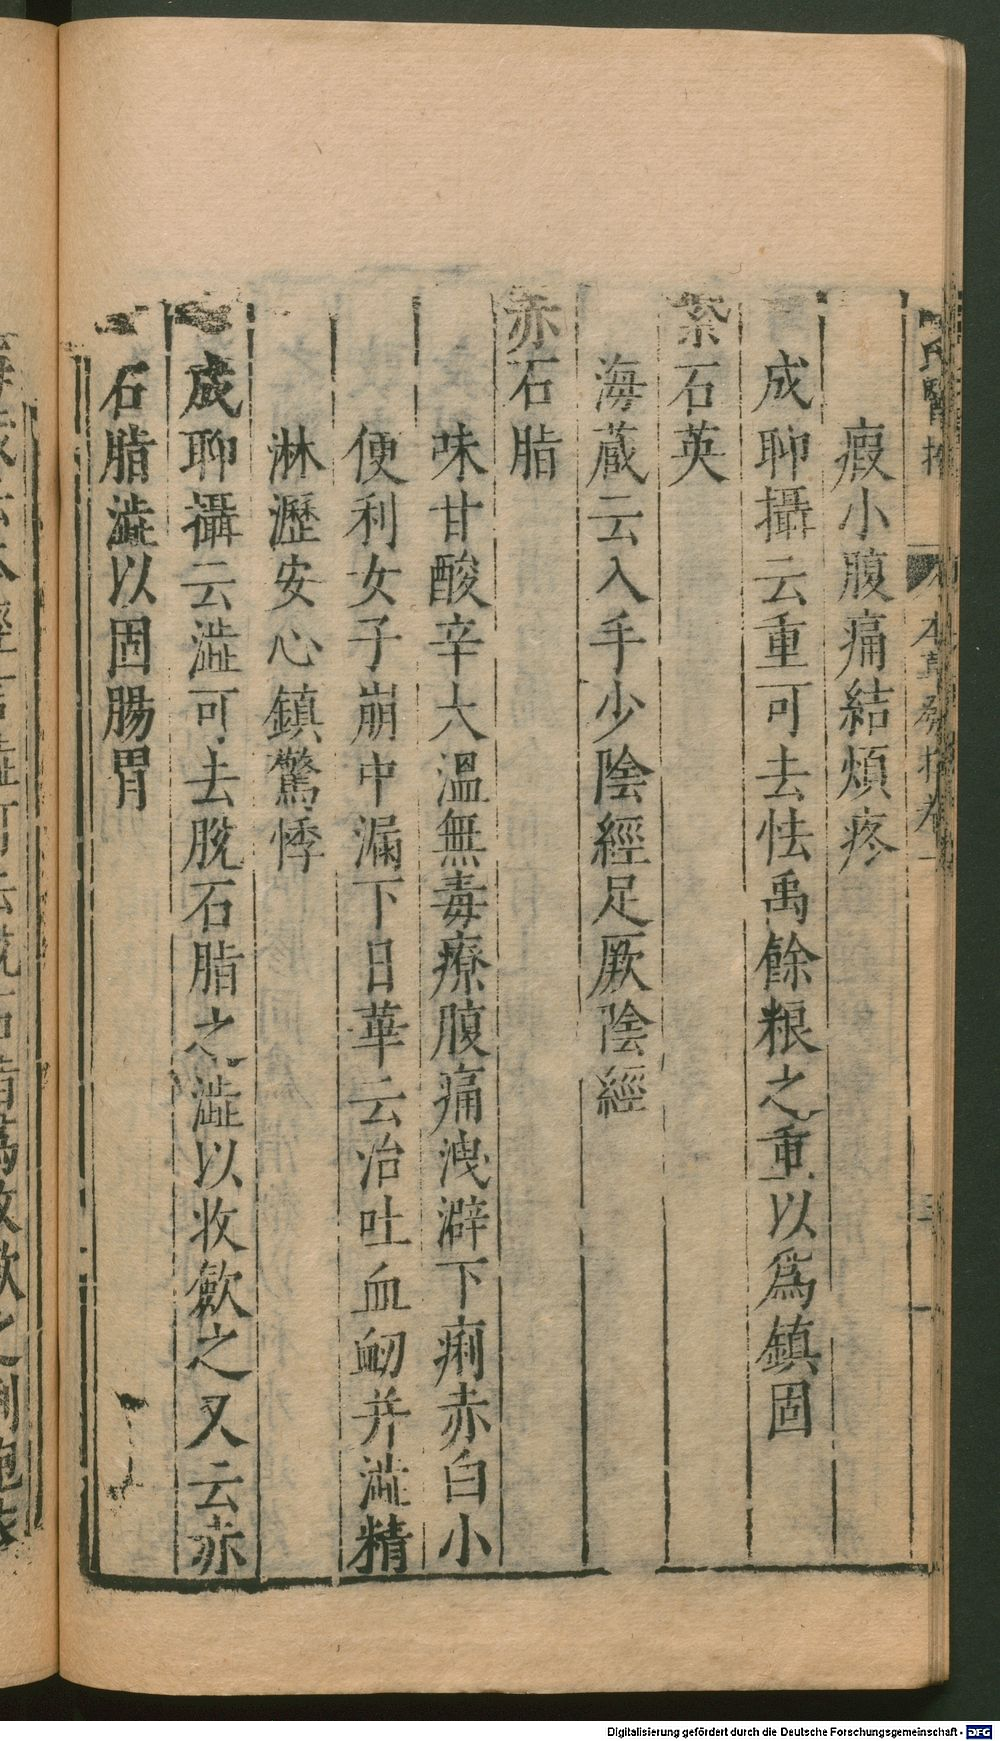 氏醫 本草發揮卷一
瘕小腹痛結煩疼
成聊攝云重可去怯禹餘粮之重以爲鎮固
紫石英
海蔵云入手少陰經足厥陰經
赤石脂
味甘酸辛大溫無毒療腹痛洩澼下痢赤白小
便利女子崩中漏下日華云治吐血衂并澁精
淋瀝安心鎮驚悸
成聊攝云澁可去脫石脂之澁以收歛之又云赤
石脂澁以固腸胃
Digitalisierung gefördert durch die Deutsche Forschungsgemeinschaft - DFG